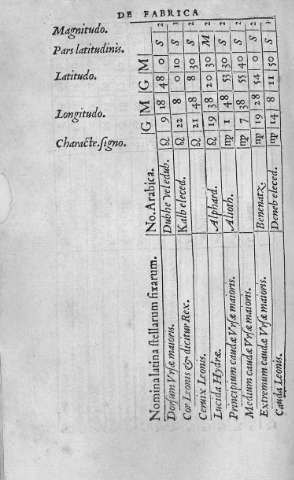 DE FABRICA
Magnitudo.
Pars latitudinis.
Latitudo.
Longitudo.
Characte. signo.
Nomina latina stellarum fixarum. No. Arabica. G M G M
Dorsum Vrsæ maioris. Dubhe veledub. ♌ 9 18 48 0 S 2
Cor Leonis & dicitur Rex. Kalb eleced. ♌ 22 8 0 10 S 1
Ceruix Leonis. ♌ 21 48 8 30 S 2
Lucida Hydræ. Alphard. ♌ 19 38 20 30 M 2
Principium caudæ Vrsæ maioris. Alioth. ♍ 1 48 53 30 S 2
Medium caudæ Vrsæ maioris. ♍ 7 38 55 40 S 2
Extremum caudæ Vrsæ maioris. Benenatz. ♍ 19 28 54 0 S 2
Cauda Leonis. Deneb eleced. ♍ 14 8 11 50 S 1